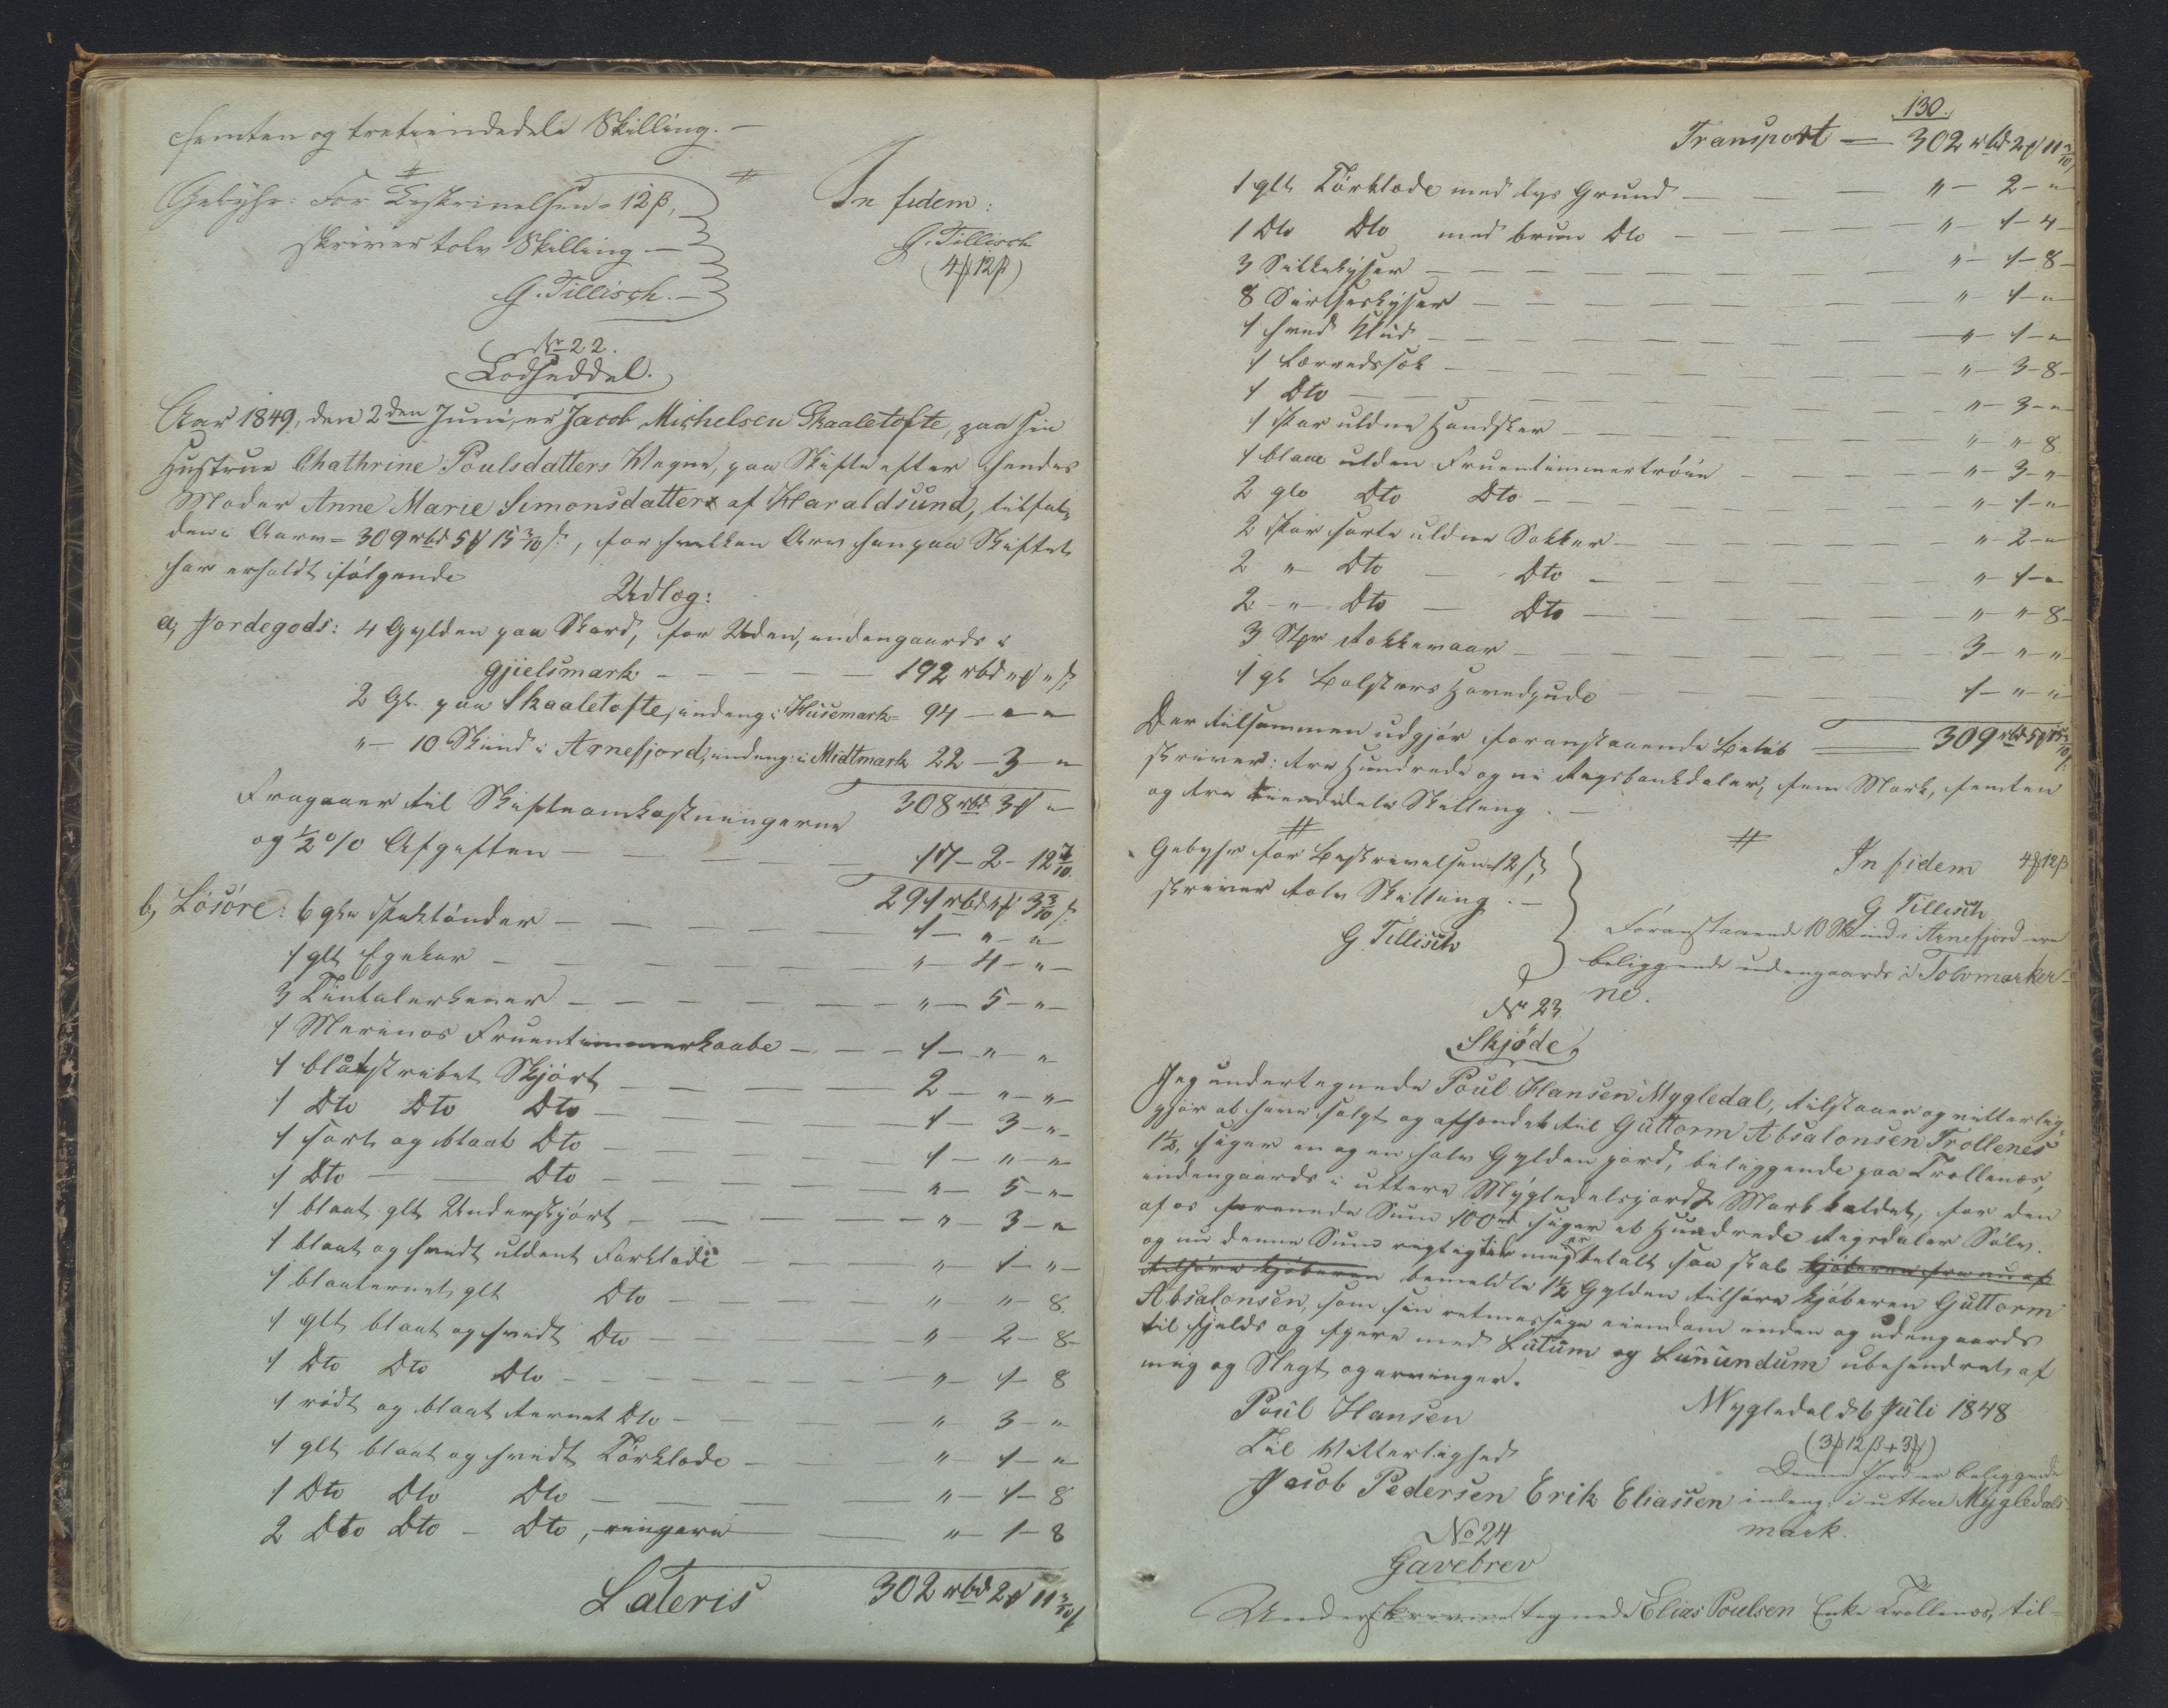 femten og tretiendedele Skilling. —
Gebyhr: For Beskrivelsen = 12 β,
skriver tolv Skilling —
G. Tillisch. —
In fidem:
G. Tillisch
(4 ₻ 12 β)
Nr 22.
Lodseddel.
Aar 1849, den 2den Juni, er Jacob Michelsen Skaaletofte, paa sin
Hustrue Chathrine Poulsdatters Vegne, paa Skifte efter hendes
Moder Anne Marie Simonsdatter af Haraldsund, tilfal-
den i Aarv = 309 rbd 5 ₻ 15 3/10 β, for hvilken Arv han paa Skiftet
har erholdt følgende
Udlæg:
a, Jordegods: 4 Gylden paa Skard, for Uden, indengaards i
Gjielsmark — — — — 192 rbd " ₻ " β
2 Gl. paa Skaaletofte, indeng: i Húsemark = 94 — " — "
" — 10 Skind i Arnefjord, indeng: i Midtmark 22 — 3 — "
308 rbd 3 ₻ "
Fragaaer til Skifteomkostningerne
og ½ % Afgiften — — — — 17 — 2 — 12 7/10
291 rbd " ₻ 3 3/10 β
b, Løsøre: 6 gle Sluktønder — — — — 1 — " — "
1 glt Egekar — — — — " — 4 — "
3 Tintalerkener — — — — " — 5 — "
1 Merinos Fruentimmerkaabe — — — 1 — " — "
1 blaatstribet Skjört — — — 2 — " — "
1 Dto Dto Dto — — — 1 — 3 — "
1 sort og blaat Dto — — — 1 — " — "
1 Dto — Dto — — — " — 5 — "
1 blaat glt Underskjört — — — " — 3 — "
1 blaat og hvidt uldent Forklæde — — " — 1 — "
1 blaaternet glt Dto — — — " — " — 8
1 glt blaat og hvidt Dto — — — " — 2 — 8
1 Dto Dto Dto — — — " — 1 — 8
1 rödt og blaat ternet Dto — — — " — 3 — "
1 glt blaat og hvidt Törklæde — — " — 1 — "
1 Dto Dto Dto — — — " — 1 — 8
2 Dto Dto — Dto, ringere — — " — 1 — 8
Lateris 302 rbd 2 ₻ 11 3/10 β
130.
Transport — 302 rbd 2 ₻ 11 3/10
1 glt Törklæde med lys Grund — — " — 2 — "
1 Dto Dto med brun Dto — — " — 1 — 4
3 Silkehýser — — — " — 1 — 8
8 Sirtseshýser — — — " — 1 — "
1 hvid Klud — — — " — 1 — "
1 Lærredssæk — — — " — 3 — 8
1 Dto — — — " — 3 — "
1 Par uldne Handsker — — — " — " — 8
1 blaae ulden Fruentimmertröie — — " — 3 — "
2 gle Dto Dto — — — " — 1 — "
2 Par sorte uldne Sokker — — — " — 2 — "
2 " Dto — Dto — — — " — 1 — "
2 — " — Dto — Dto — — — " — " — 8
3 Stkr Rokkevaar — — — 3 — " — "
1 gl Bolsters Hovedpude — — — 1 — " — "
Der tilsammen udgjör foranstaaende Beløb — 309 rbd 5 ₻ 15 3/10 β
skriver: tre Hundrede og ni Rigsbankdaler, fem Mark, femten
og tre tiendedele Skilling. —
Gebyhr for Beskrivelsen 12 β,
skriver tolv Skilling. —
G. Tillisch
In fidem 4 ₻ 12 β
G Tillisch
Foranstaaende 10 Skind i Arnefjord ere
beliggende udengaards i Tolvmarker-
ne.
Nr 23
Skjøde,
Jeg undertegnede Poul Hansen Mygledal, tilstaaer og vitterlig-
gjör at have solgt og afhændet til Guttorm Absalonsen Trollenes
1½, siger en og en halv Gylden jord, beliggende paa Trollenæs,
indengaards i uttere Mýgledalsjords Mark kaldet, for den
af os forenede Sum 100 rd siger et Hundrede Rigsdaler Sölv.
og nu denne Sum rigtig til mig er betalt saa skal kjöberen fra nu af
tilhöre kjöberen bemeldte 1½ Gylden tilhöre kjöberen Guttorm
Absalonsen, som sin retmessige eiendom inden og udengaards
til fjelds og fjære med Lutúm og Lunúndum ubehindret af
mig og Slegt og arvinger.
Mygledal d 6 Júli 1848
Poúl Hansen
(3 ₻ 12 β + 3 ₻)
Til Vitterlighed
Jacob Pedersen Erik Eliassen
Denne Jord er beliggende
indeng: i uttere Mýgledals
mark.
No 24
Gavebrev
Underskrevne tegnede Elias Poulsen Enke Trollenæs, til-